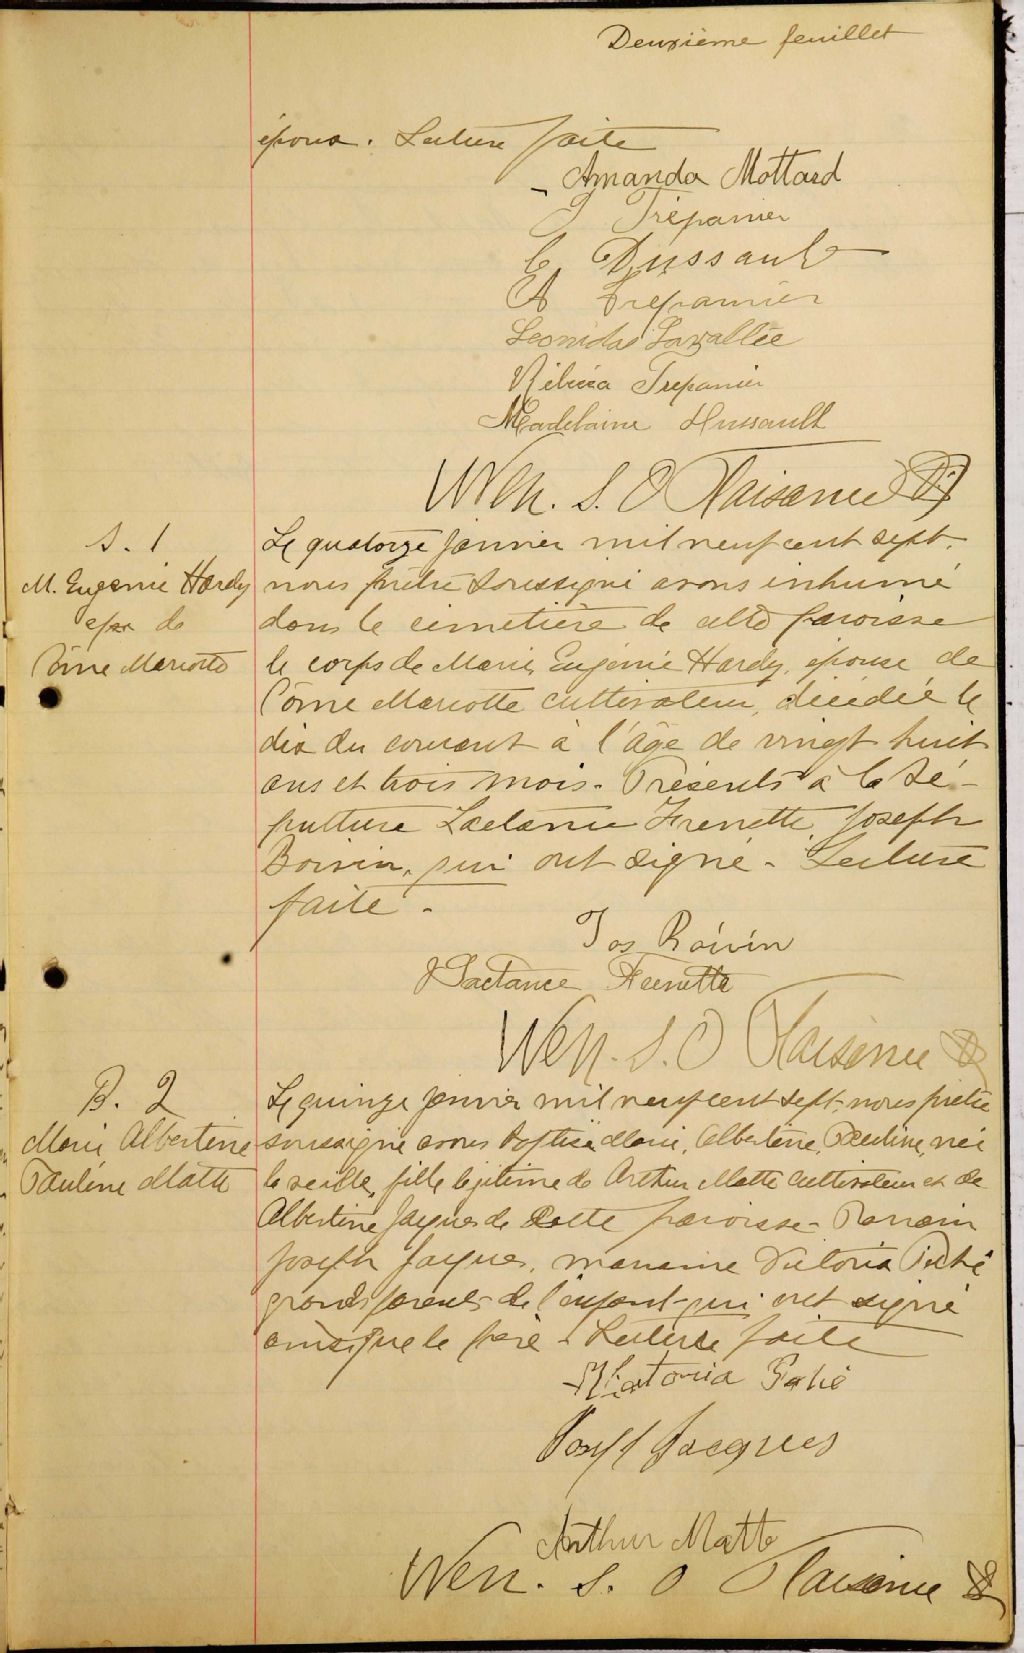 Deuxième feuillet
époux. Lecture faite
Amanda Mottard
J Trépanier
C Dussault
A Trepannier
Leonidas Lavallée
Trepanier
Madelaine Dussault
Wen. S. O Plaisance Ptr
S. 1
M. Eugenie Hardy
eps de
Côme Marcotte
Le quatorze janvier mil neuf cent sept,
nous prêtre soussigné avons inhumé
dans le cimetière de cette paroisse
le corps de Marie, Eugénie Hardy, épouse de
Côme Marcotte cultivateur, décédée le
dix du courant à l'âge de vingt huit
ans et trois mois. Présents à la sé-
pulture Lactance Frenette, Joseph
Boivin, qui ont signé. Lecture
faite.
Jos Boivin
Lactance Frenette
Wen. S. O Plaisance Ptr
B. 2
Marie Albertine
Pauline Matte
Le quinze janvier mil neuf cent sept, nous prêtre
soussigné avons baptisé Marie, Albertine, Pauline, née
la veille, fille légitime de Arthur Matte cultivateur et de
Albertine Jacques de cette paroisse. Parrain
Joseph Jacques, marraine Victoria Piché
grands parents de l'enfant qui ont signé
ainsi que le père. Lecture faite
Victoria Piché
Josef Jacques
Arthur Matte
Wen. S. O Plaisance Ptr